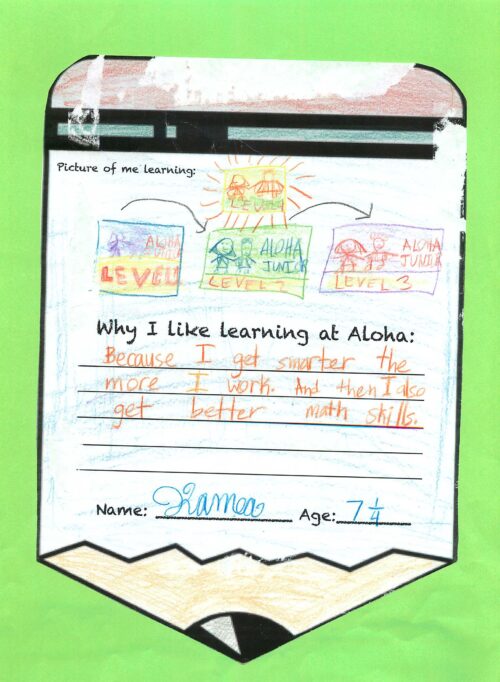 Picture of me learning:
LEVEL
ALOHA
JUNIOR
LEVEL 1
ALOHA
JUNIOR
LEVEL 2
ALOHA
JUNIOR
LEVEL 3
Why I like learning at Aloha:
Because I get smarter the
more I work. And then I also
get better math skills.
Name: Kamea Age: 7 1/4